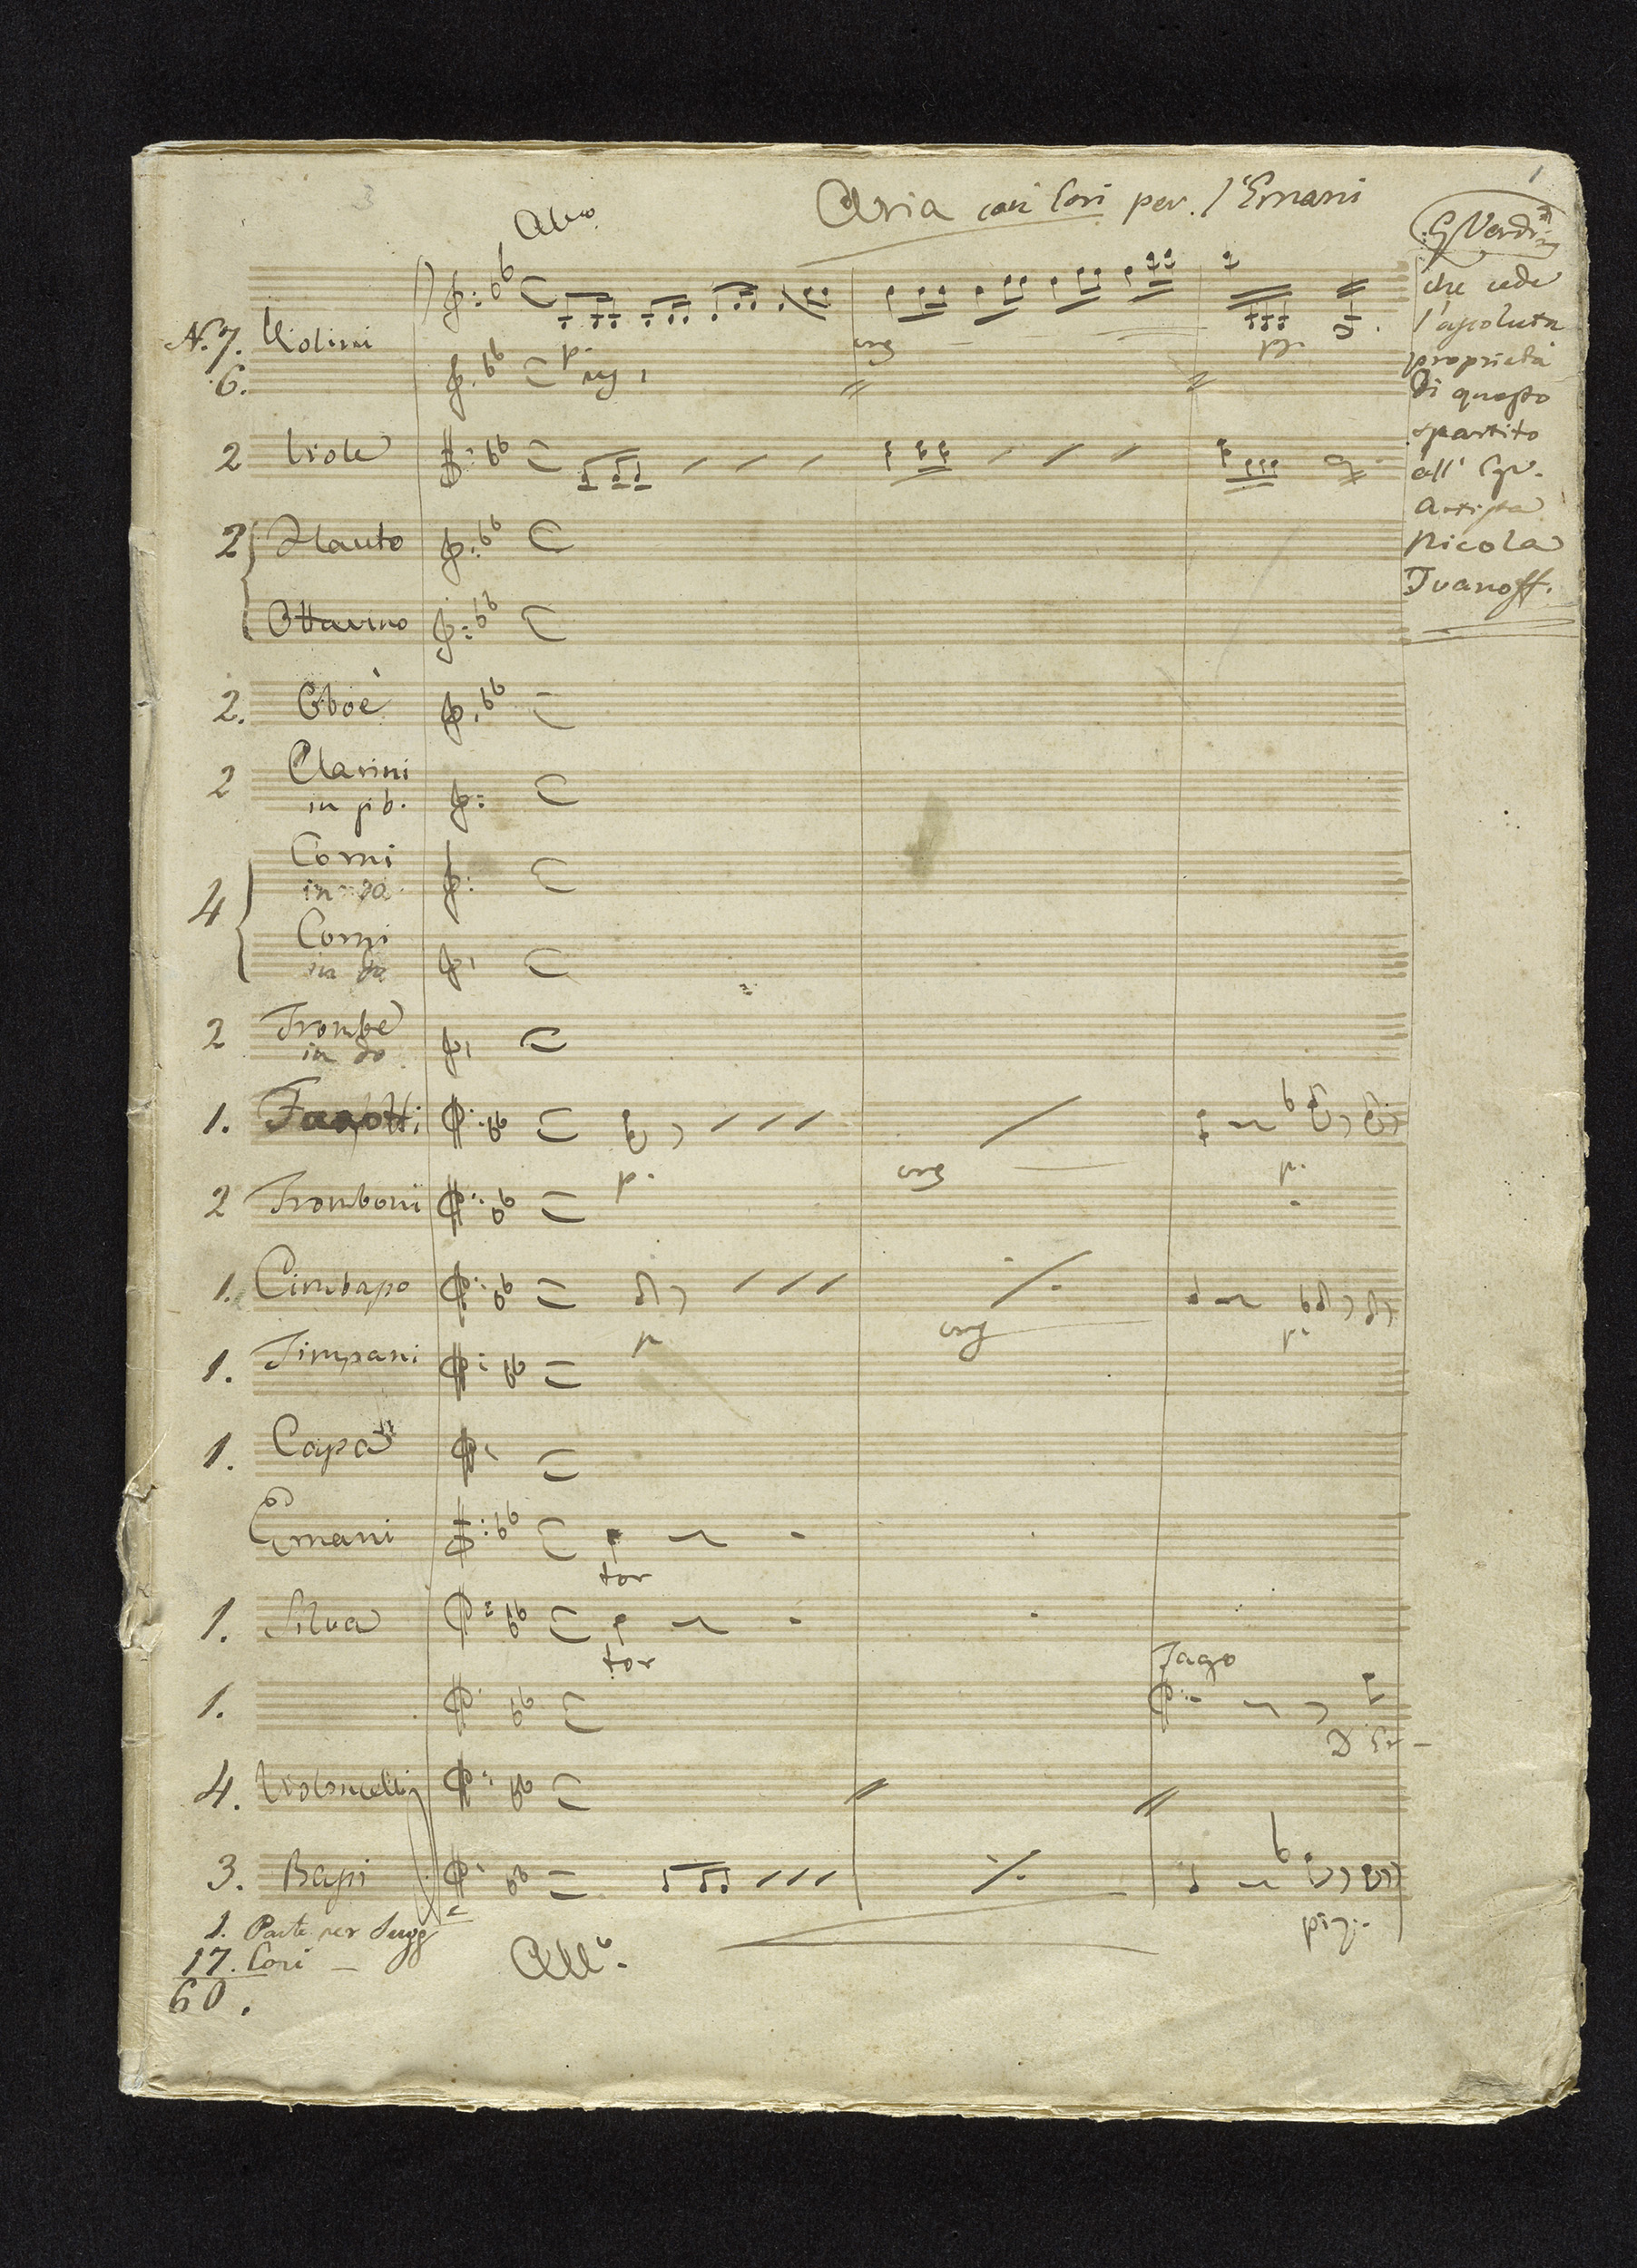 3
1
Aria con Cori per l'Ernani
All.o
G Verdi
che cede
l'assoluta
proprietà
Di questo
spartito
all' Egr.
Artista
Nicola
Ivanoff.
N. 7. Violini
6.
p.
cres
pp.
2 Viole
2 Flauto
Ottavino
2. Oboè
2 Clarini
in sib.
4 Corni
Corni
2 Trombe
in do
1. Fagotti
p.
cres
p.
2 Tromboni
1. Cimbasso
p
cres
p.
1. Timpani
1. Cassa
Ernani
tor
1. Silva
tor
Jago
1.
D'Er-
4. Violoncelli
3. Bassi
piz:.
1. Parte per Sugg
17. Cori -
60.
All.o